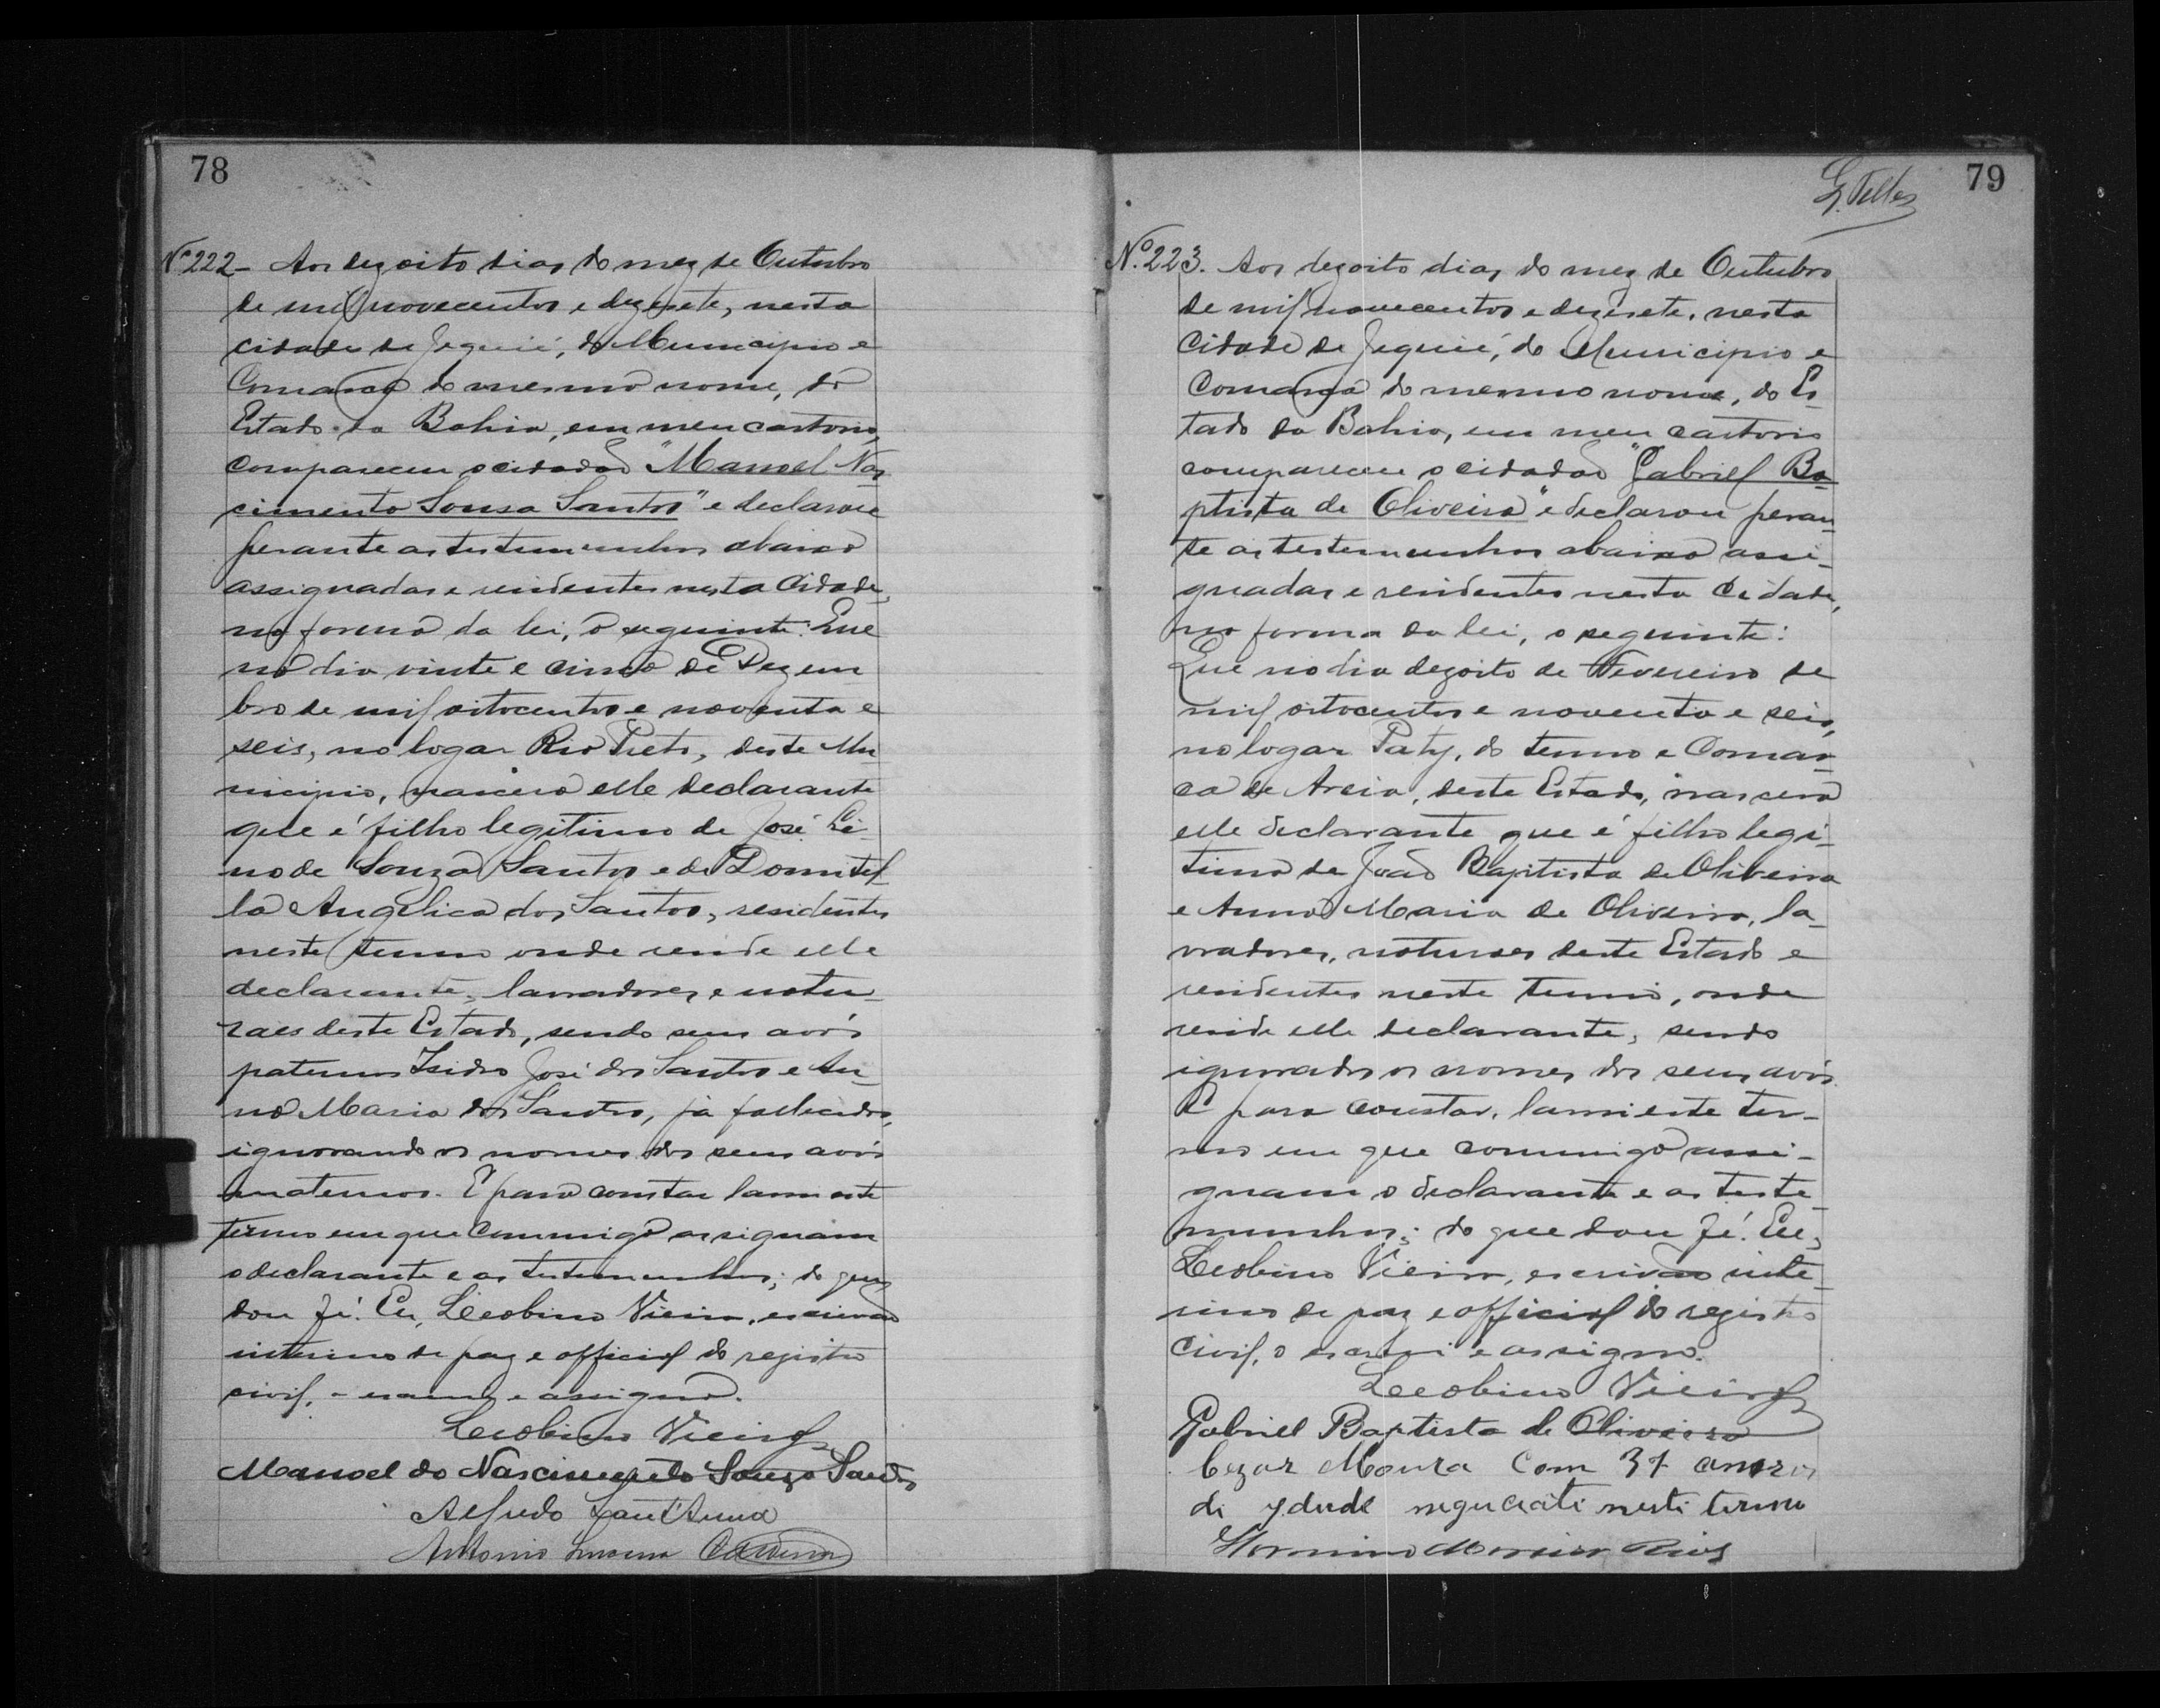 78
Nº 222 - Aos dezoito dias do mez de Outubro
de mil novecentos e dezesete, nesta
cidade de Jequié, do Municipio e
Comarca do mesmo nome, do
Estado da Bahia, em meu cartorio,
compareceu o cidadão "Manoel Nas
cimento Sousa Santos" e declarou
perante as testemunhas abaixo
assignadas e residentes nesta Cidade,
na forma da lei, o seguinte: Que
no dia vinte e cinco de Dezem
bro de mil oitocentos e noventa e
seis, no logar Rio Preto, deste Mu
nicipio, nascera elle declarante
que é filho legitimo de José Li-
no de Souza Santos e de Domitil-
la Angelica dos Santos, residentes
neste termo onde reside elle
declarante, lavradores e natu-
raes deste Estado, sendo seus avós
paternos Isidro José dos Santos e An-
na Maria dos Santos, já fallecidos,
ignorando os nomes dos seus avós
maternos. E para constar lavrei este
termo em que commigo assignam
o declarante e as testemunhas; do que
dou fé. Eu, Leobino Vieira, escrivão
interino de paz e official do registro
civil, o escrevi e assigno.
Leobino Vieira
Manoel do Nascimento Souza Santos
Alfredo Sant'Anna
Antonio
79
G. Telles
Nº. 223. Aos dezoito dias do mez de Outubro
de mil novecentos e dezesete, nesta
Cidade de Jequié, do Municipio e
Comarca do mesmo nome, do Es-
tado da Bahia, em meu cartorio
compareceu o cidadão "Gabriel Ba-
ptista de Oliveira" e declarou peran-
te as testemunhas abaixo assi-
gnadas e residentes nesta Cidade,
na forma da lei, o seguinte:
Que no dia dezoito de Fevereiro de
mil oitocentos e noventa e seis,
no logar Paty, do termo e Comar-
ca de Areia, deste Estado, nascera
elle declarante que é filho legi-
timo de João Baptista de Oliveira
e Anna Maria de Oliveira, la-
vradores, naturaes deste Estado e
residentes neste termo, onde
reside elle declarante, sendo
ignorados os nomes dos seus avós.
E para constar, lavrei este ter-
mo em que commigo assi-
gnam o declarante e as teste-
munhas; do que dou fé. Eu,
Leobino Vieira, escrivão inte-
rino de paz e official do registro
civil, o escrevi e assigno.
Leobino Vieira
Gabriel Baptista de Oliveira
Cezar Moura Com 37 annos
di ydade neguciati nesti termo